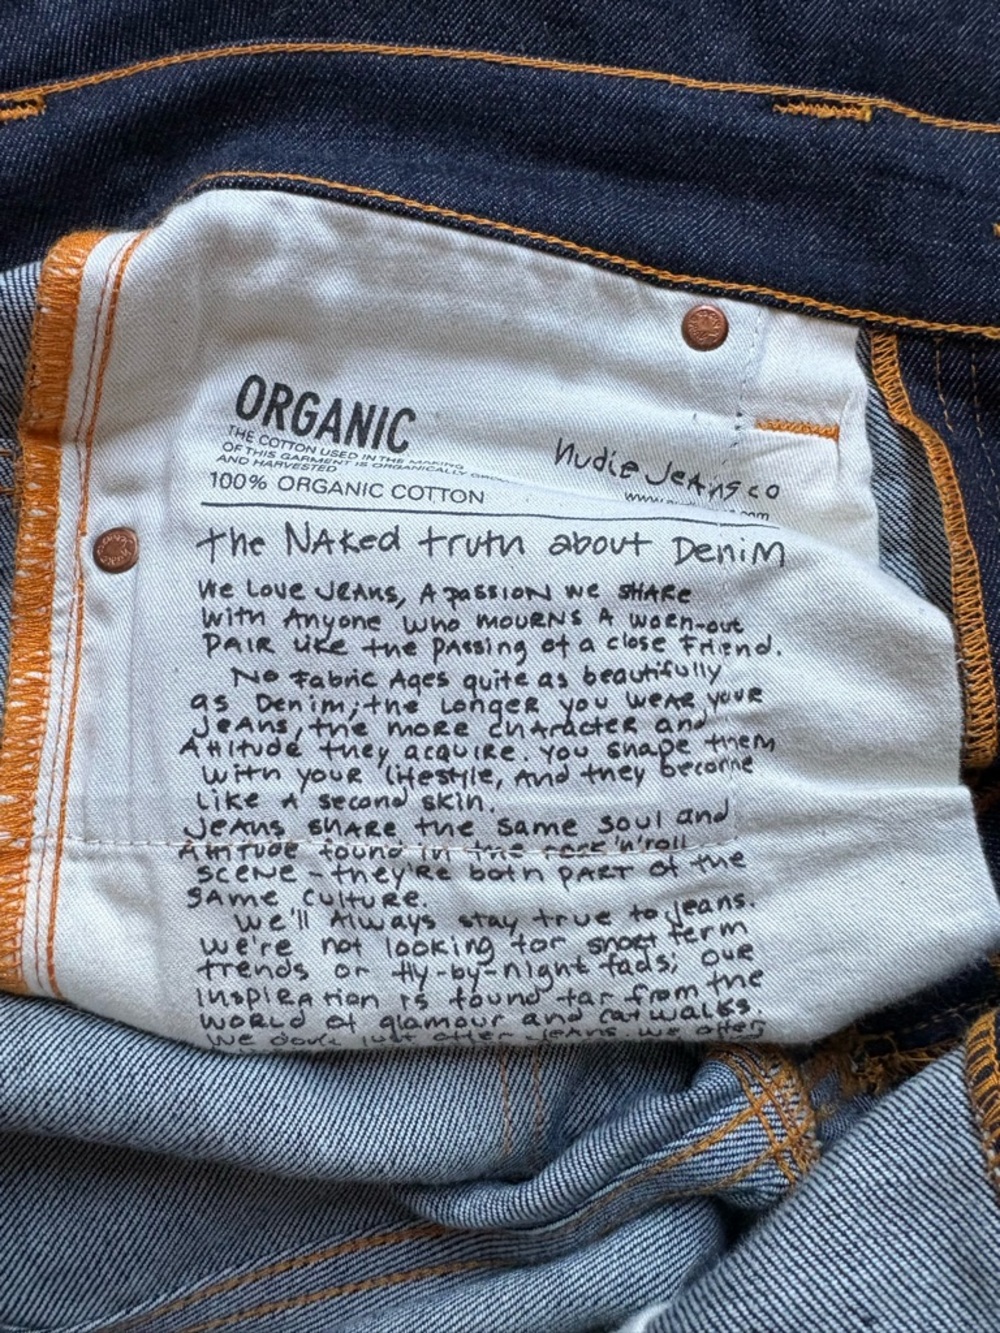 ORGANIC
THE COTTON USED IN THE MAKING
OF THIS GARMENT IS ORGANICALLY
AND HARVESTED
100% ORGANIC COTTON
Nudie Jeans co
www.
.com
the NAKed truth about DeniM
We Love JEANS, A passion we SHARe
with Anyone who mourns A worn-out
PAIR like the passing of a close Friend.
No Fabric Ages quite as beautifully
as Denim; the Longer you weAR your
JeAns, the more character and
Attitude they acquire. You shape them
with your lifestyle, And they become
like A second skin.
JEAns shARe the same soul and
Attitude found in the rock'n'roll
SCENE - they're both pART of the
SAme culture.
We'll Always stay true to Jeans.
We're not looking for short term
trends or fly-by-night fads; our
inspiration is found far from the
WORLD of glamour and catwalks.
We don't just offer jeans. We offer